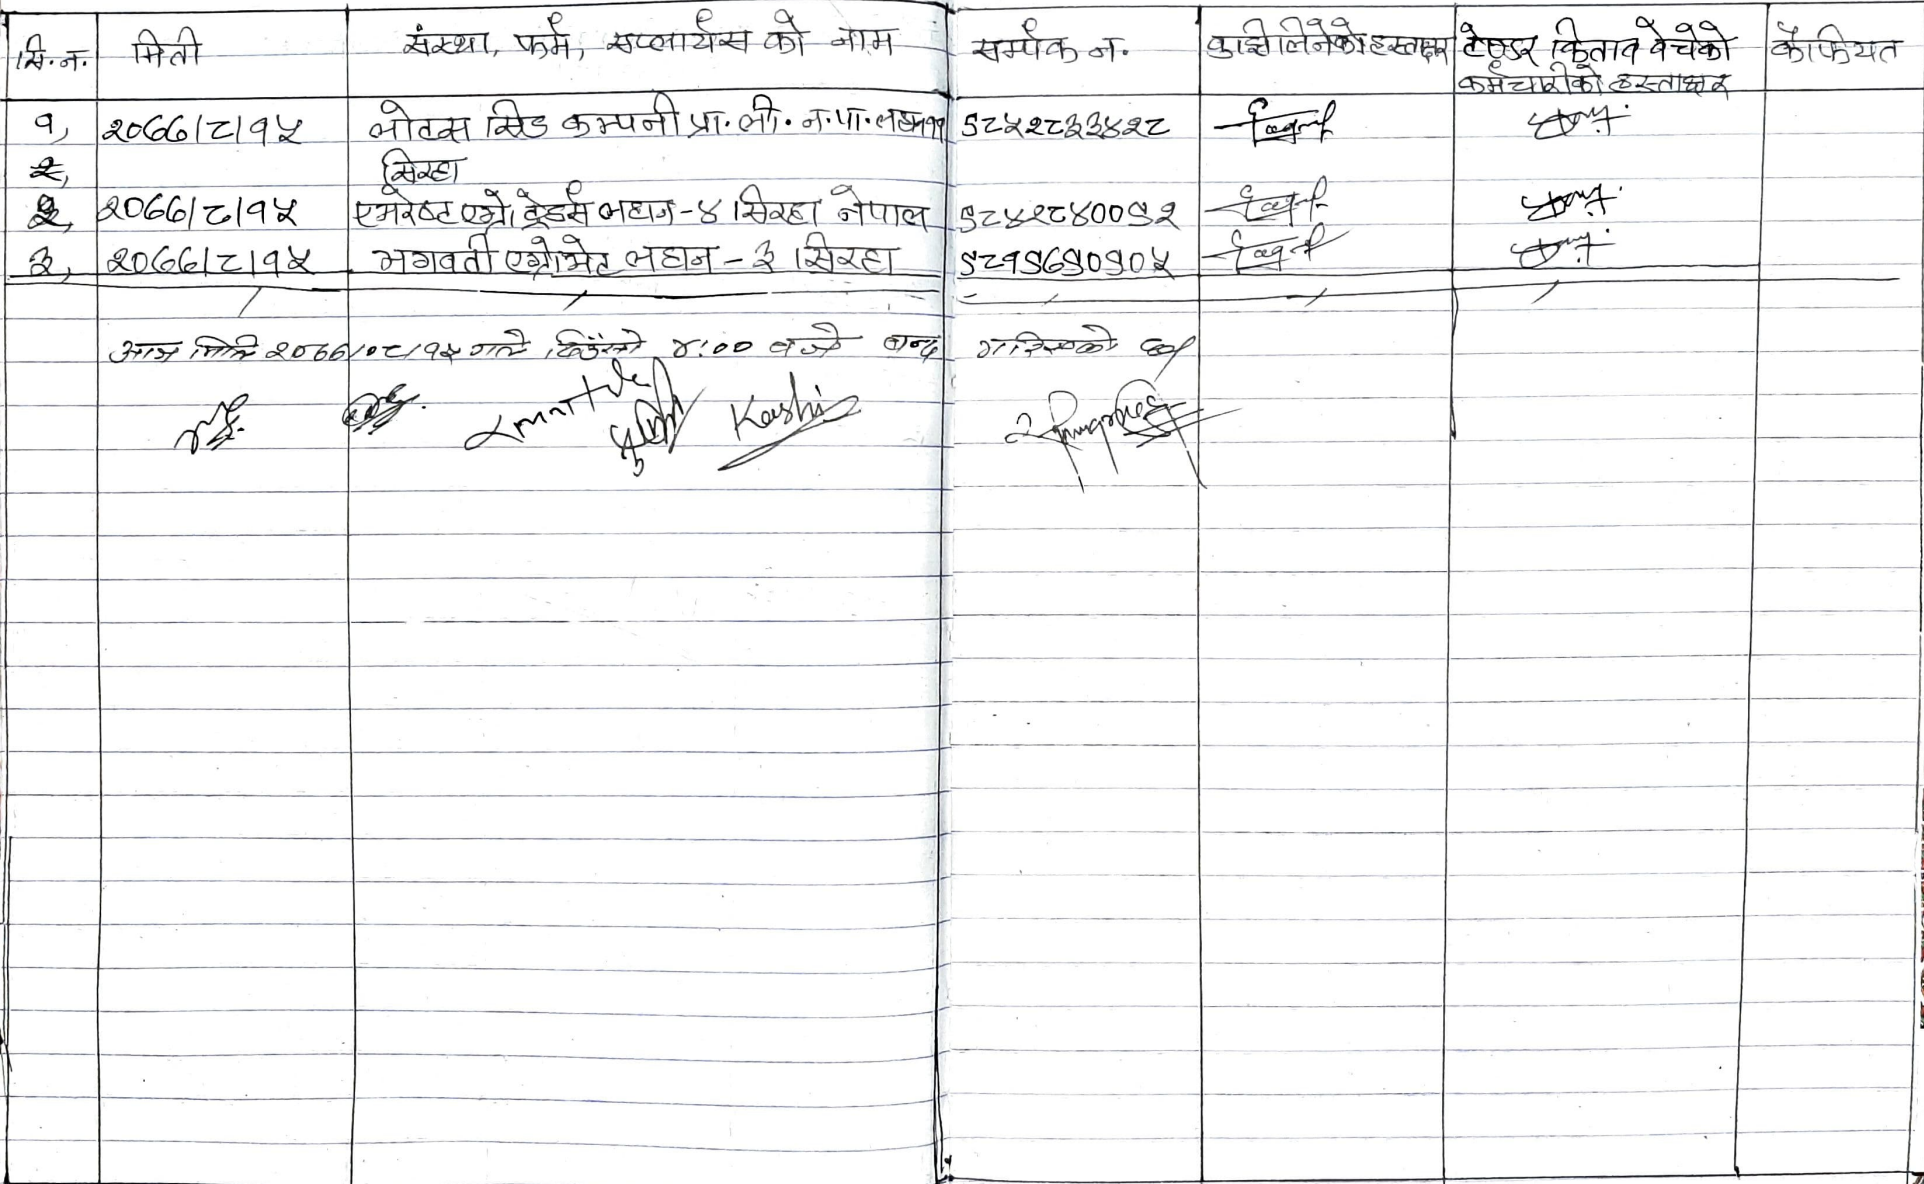 सि.न. मिती संस्था, फर्म, सप्लायर्स को नाम सर्म्पक न. बुझिलिनेको हस्ताक्षर टेण्डर किताव वेचेको कर्मचारीको हस्ताक्षर कैफियत
१, २०७७/८/१५ लोटस सिड कम्पनी प्रा.ली. न.पा. ९८५२८३३४२८
२, सिरहा
२, २०७७/८/१५ एभरेष्ट एग्रो ट्रेडर्स लहान-४ सिरहा नेपाल ९८४२८४००९२
३, २०७७/८/१५ भगवती एग्रोभेट लहान-३ सिरहा ९८१९६९०९०५
आज मिति २०७७/०८/१५ गते दिउँसो ४:०० बजे बन्द गरिएको छ।
Kashi